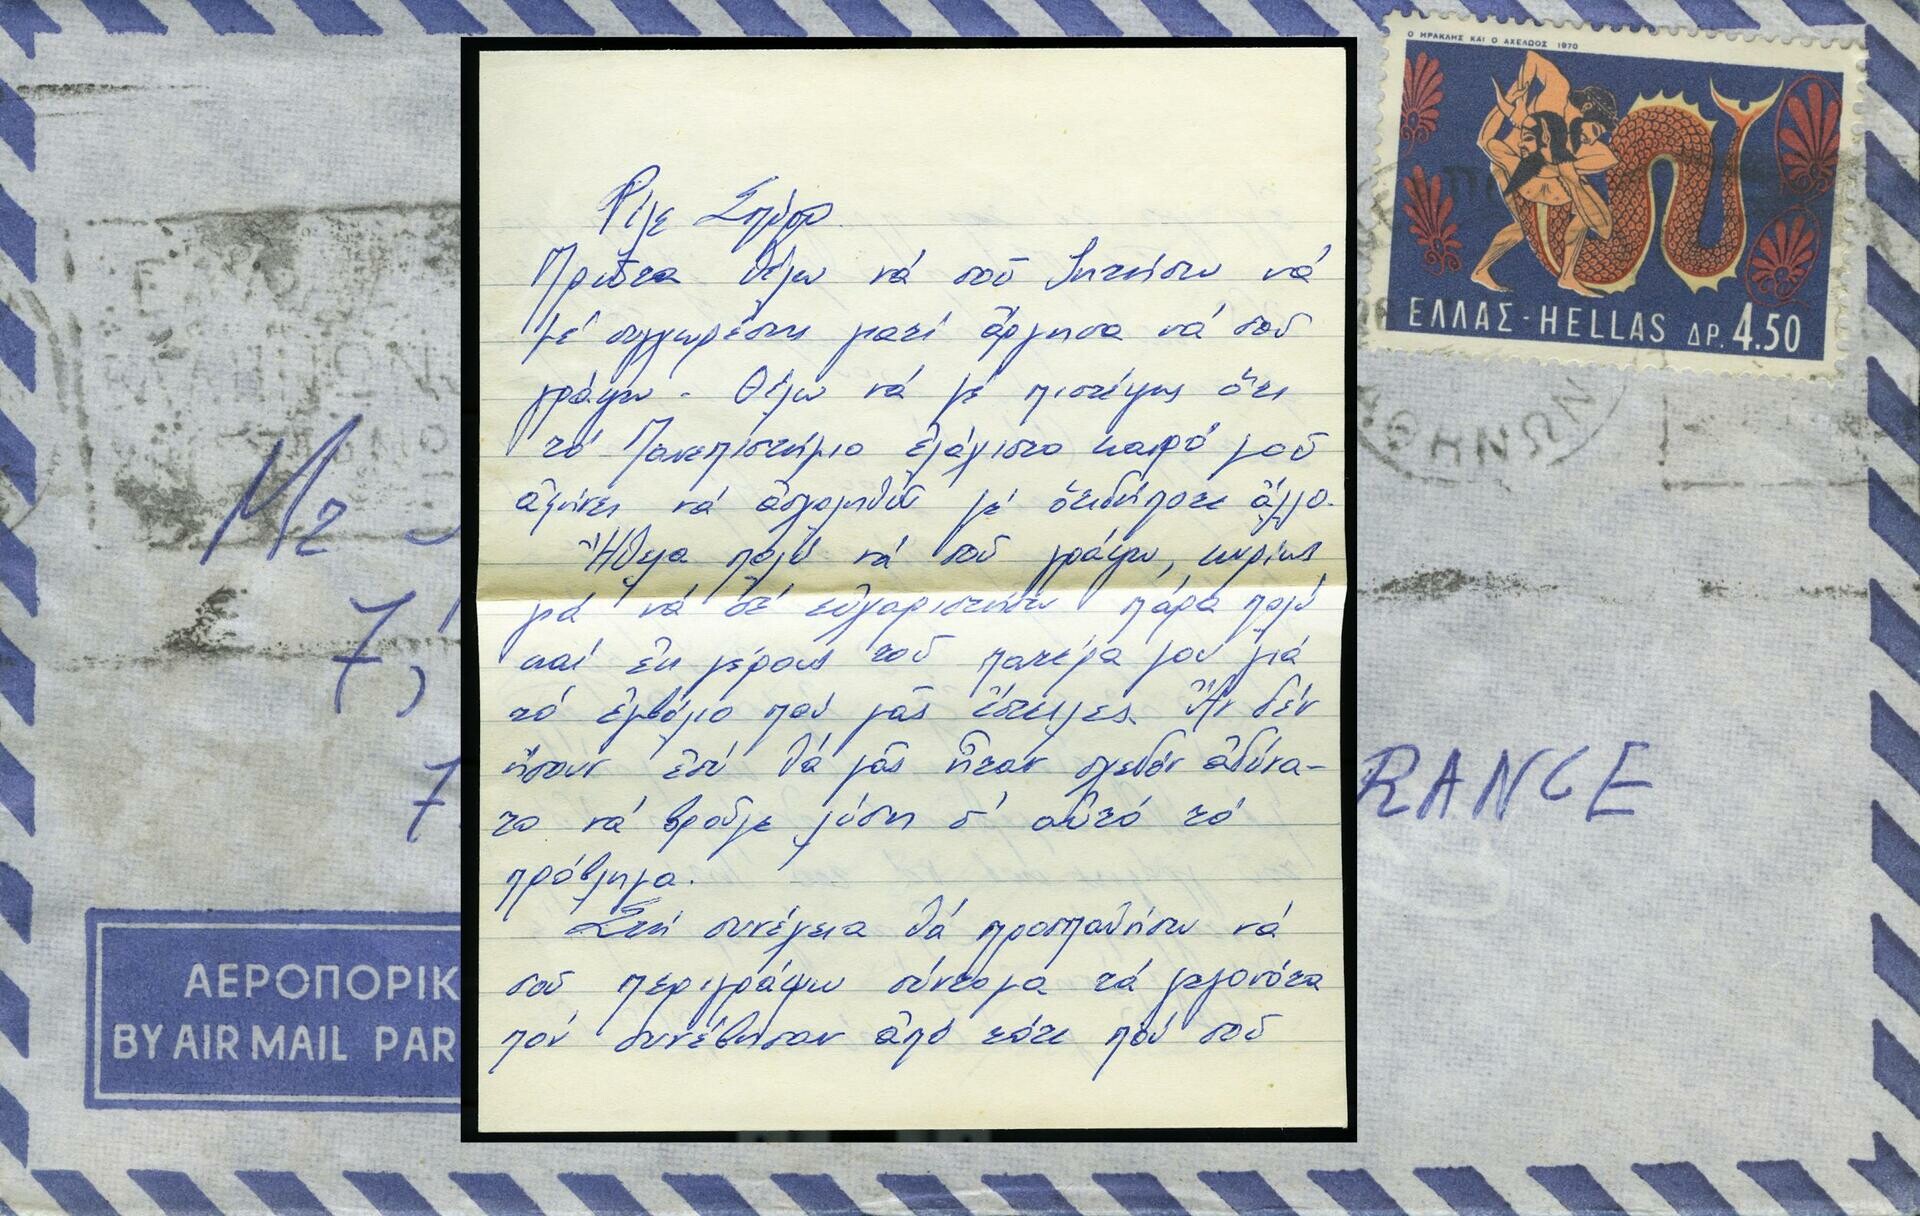 Ο ΗΡΑΚΛΗΣ ΚΑΙ Ο ΑΧΕΛΩΟΣ 1970
ΕΛΛΑΣ-HELLAS ΔΡ. 4.50
ΑΘΗΝΩΝ
Mr
7,
7
RANCE
ΑΕΡΟΠΟΡΙΚ
BY AIR MAIL PAR
Φίλε Σπύρο
Πρῶτα θέλω νά σοῦ ζητήσω νά
μέ συγχωρέσης γιατί ἄργησα νά σοῦ
γράψω - Θέλω νά μέ πιστέψης ὅτι
τό Πανεπιστήμιο ἐλάχιστο καιρό μοῦ
ἀφήνει νά ἀσχοληθῶ μέ ὁτιδήποτε ἄλλο.
Ἤθελα πολύ νά σοῦ γράψω, κυρίως
γιά νά σέ εὐχαριστήσω πάρα πολύ
καί ἐκ μέρους τοῦ πατέρα μου γιά
τό ἐμβόλιο πού μᾶς ἔστειλες. Ἄν δέν
ἤσουν ἐσύ θά μᾶς ἦταν σχεδόν ἀδύνα-
το νά βροῦμε λύση σ' αὐτό τό
πρόβλημα.
Στή συνέχεια θά προσπαθήσω νά
σοῦ περιγράψω σύντομα τά γεγονότα
πού συνέβησαν ἀπό τότε πού σοῦ